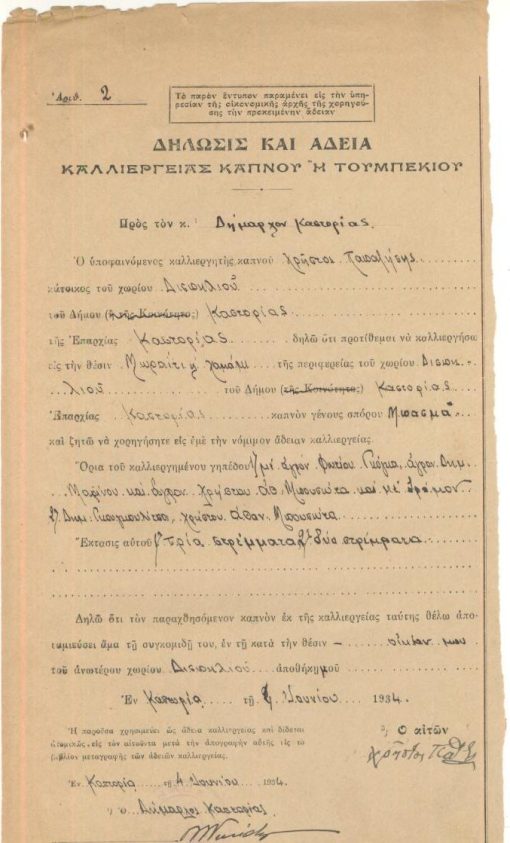 Ἀριθ. 2
Τὸ παρὸν ἔντυπον παραμένει εἰς τὴν ὑπη-
ρεσίαν τῆς οἰκονομικῆς ἀρχῆς τῆς χορηγού-
σης τὴν προκειμένην ἄδειαν
ΔΗΛΩΣΙΣ ΚΑΙ ΑΔΕΙΑ
ΚΑΛΛΙΕΡΓΕΙΑΣ ΚΑΠΝΟΥ Ἢ ΤΟΥΜΠΕΚΙΟΥ
Πρὸς τὸν κ. Δήμαρχον Καστορίας
Ὁ ὑποφαινόμενος καλλιεργητὴς καπνοῦ Χρῆστος
κάτοικος τοῦ χωρίου Δισπηλιοῦ
τοῦ Δήμου (ἢ τῆς Κοινότητος) Καστορίας
τῆς Ἐπαρχίας Καστορίας δηλῶ ὅτι προτίθεμαι νὰ καλλιεργήσω
εἰς τὴν θέσιν τῆς περιφερείας τοῦ χωρίου Δισπη-
λιοῦ τοῦ Δήμου (τῆς Κοινότητος) Καστορίας
Ἐπαρχίας Καστορίας καπνὸν γένους σπόρου Μπασμᾶ
καὶ ζητῶ νὰ χορηγήσητε εἰς ἐμὲ τὴν νόμιμον ἄδειαν καλλιεργείας.
Ὅρια τοῦ καλλιεργημένου γηπέδου μὲ ἀγρὸν Φωτίου ἀγρὸν Δημ.
καὶ ἀγρὸν Χρήστου Ἀθ. καὶ μὲ δρόμον
Δημ. Χρῆστον Ἀθαν.
Ἔκτασις αὐτοῦ τρία στρέμματα δύο στρέμματα
Δηλῶ ὅτι τὸν παραχθησόμενον καπνὸν ἐκ τῆς καλλιεργείας ταύτης θέλω ἀπο-
ταμιεύσει ἅμα τῇ συγκομιδῇ του, ἐν τῇ κατὰ τὴν θέσιν – οἰκίαν μου
τοῦ ἀνωτέρου χωρίου Δισπηλιοῦ ἀποθήκῃ μοῦ
Ἐν Καστορίᾳ τῇ Ἰουνίου 1934.
Ἡ παροῦσα χρησιμεύει ὡς ἄδεια καλλιεργείας καὶ δίδεται
ἀτομικῶς εἰς τὸν αἰτοῦντα μετὰ τὴν ἀπογραφὴν αὐτῆς εἰς τὸ
βιβλίον μεταγραφῆς τῶν ἀδειῶν καλλιεργείας.
Ὁ αἰτῶν
Χρῆστος
Ἐν Καστορίᾳ τῇ 4 Ἰουνίου 1934.
Ὁ Δήμαρχος Καστορίας